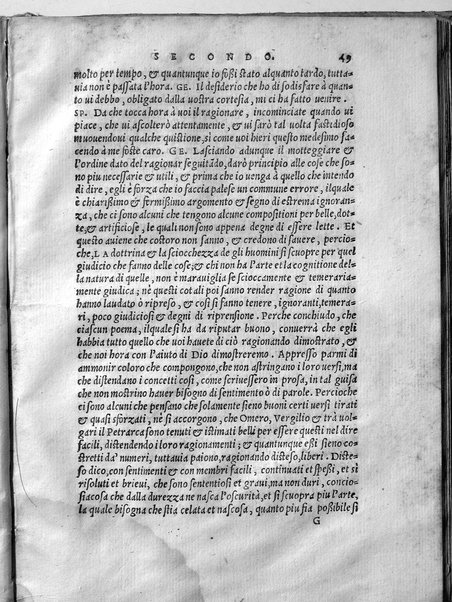 SECONDO. 49
molto per tempo, & quantunque io foßi stato alquanto tardo, tutta-
uia non è passata l'hora. GE. Il desiderio che ho di sodisfare à quan-
to ui debbo, obligato dalla uostra cortesia, mi ci ha fatto uenire.
SP. Da che tocca hora à uoi il ragionare, incominciate quando ui
piace, che ui ascolterò attentamente, & ui sarò tal uolta fastidioso
muouendoui qualche quistione, si come uoi hieri questo medesimo fa-
cendo à me foste caro. GE. Lasciando adunque il motteggiare &
l'ordine dato del ragionar seguitãdo, darò principio alle cose che so-
no piu necessarie & utili, & prima che io uenga à quello che intendo
di dire, egli è forza che io faccia palese un commune errore, ilquale
è chiarißimo & fermißimo argomento & segno di estrema ignoran-
za, che ci sono alcuni che tengono alcune compositioni per belle, dot-
te, & artificiose, le quali non sono appena degne di essere lette. Et
questo auiene che costoro non sanno, & credono di sauere, percio-
che, LA dottrina & la sciocchezza de gli huomini si scuopre per quel
giudicio che fanno delle cose; & chi non ha l'arte et la cognitione del-
la natura di quelle, non è marauiglia se scioccamente & temeraria-
mente giudica; nè questi cotali poi sanno render ragione di quanto
hanno laudato ò ripreso, & cosi si fanno tenere, ignoranti, temera-
ri, poco giudiciosi & degni di riprensione. Perche conchiudo, che
ciascun poema, ilquale si ha da riputar buono, conuerrà che egli
habbia tutto quello che uoi hauete di ciò ragionando dimostrato, &
che noi hora con l'aiuto di Dio dimostreremo. Appresso parmi di
ammonir coloro che compongono, che non astringano i loro uersi, ma
che distendano i concetti cosi, come scriuessero in prosa, in tal guisa
che non mostrino hauer bisogno di sentimento ò di parole. Percioche
ci sono alcuni che pensano che solamente sieno buoni certi uersi tirati
& quasi sforzati, nè si accorgono, che Omero, Vergilio & trà uol-
gari il Petrarca sono tenuti & istimati belli per essere questi nel dire
facili, distendendo i loro ragionamenti; & quantunque eßi sieno co-
stretti da' numeri, tuttauia paiono, ragionando disteso, liberi. Diste-
so dico, con sentimenti & con membri facili, continuati et speßi, et sì
risoluti et brieui, che sono sententiosi et graui, ma non duri, concio-
siacosa che dalla durezza ne nasca l'oscurità, et si scuopra piu l'arte,
la quale bisogna che stia celata et nascosa, quanto piu sia poßibile si
G